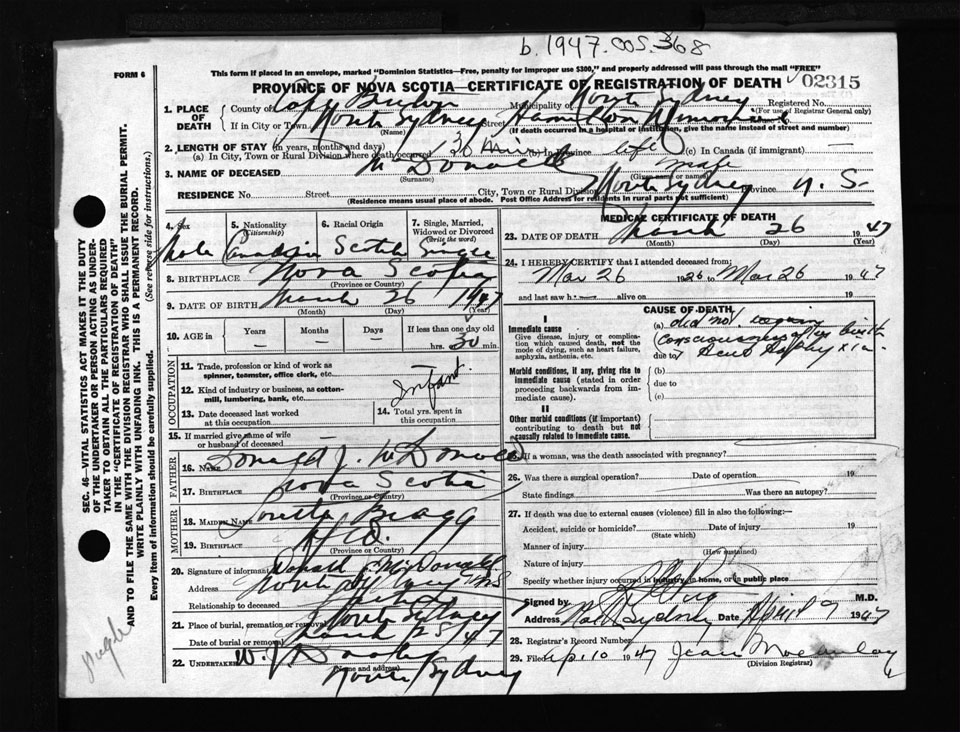 b. 1947.005.368
FORM 6
This form if placed in an envelope, marked "Dominion Statistics—Free, penalty for improper use $300," and properly addressed will pass through the mail "FREE"
PROVINCE OF NOVA SCOTIA—CERTIFICATE OF REGISTRATION OF DEATH 02315
1. PLACE OF DEATH County of Cape Breton Municipality of North Sydney Registered No.
(For use of Registrar General only)
If in City or Town North Sydney Street Hamilton Memorial
(Name) (If death occurred in a hospital or institution, give the name instead of street and number)
2. LENGTH OF STAY (in years, months and days)
(a) In City, Town or Rural Division where death occurred 30 min (b) In Province life (c) In Canada (if immigrant) —
3. NAME OF DECEASED McDonald male
(Surname) (Given name or names)
RESIDENCE No. Street City, Town or Rural Division North Sydney Province N. S.
(Residence means usual place of abode. Post Office Address for residents in rural parts not sufficient)
4. Sex 5. Nationality (Citizenship) 6. Racial Origin 7. Single, Married, Widowed or Divorced (Write the word)
Male Canadian Scotch Single
8. BIRTHPLACE Nova Scotia
(Province or Country)
9. DATE OF BIRTH March 26 1947
(Month) (Day) (Year)
10. AGE in Years Months Days If less than one day old
hrs. 30 min.
OCCUPATION
11. Trade, profession or kind of work as spinner, teamster, office clerk, etc.
Infant
12. Kind of industry or business, as cotton-mill, lumbering, bank, etc.
13. Date deceased last worked at this occupation
14. Total yrs. spent in this occupation
15. If married give name of wife or husband of deceased
FATHER
16. Name Donald J. McDonald
17. BIRTHPLACE Nova Scotia
(Province or Country)
MOTHER
18. MAIDEN NAME Loretta Bragg
19. BIRTHPLACE
(Province or Country)
20. Signature of informant Donald J McDonald
Address North Sydney NS
Relationship to deceased father
21. Place of burial, cremation or removal North Sydney
Date of burial or removal March 25 47
22. UNDERTAKER
(Name and address)
North Sydney
MEDICAL CERTIFICATE OF DEATH
23. DATE OF DEATH March 26 1947
(Month) (Day) (Year)
24. I HEREBY CERTIFY that I attended deceased from:
Mar 26 1926 to Mar 26 1947
and last saw h alive on 19
CAUSE OF DEATH
I
Immediate cause
Give disease, injury or complication which caused death, not the mode of dying, such as heart failure, asphyxia, asthenia, etc.
(a) did not
consciousness after birth
due to
Morbid conditions, if any, giving rise to immediate cause (stated in order proceeding backwards from immediate cause).
(b)
due to
(c)
II
Other morbid conditions (if important) contributing to death but not causally related to immediate cause.
25. If a woman, was the death associated with pregnancy?
26. Was there a surgical operation? Date of operation 19
State findings Was there an autopsy?
27. If death was due to external causes (violence) fill in also the following:—
Accident, suicide or homicide? Date of injury 19
(State which)
Manner of injury
(How sustained)
Nature of injury
Specify whether injury occurred in industry, in home, or in public place
Signed by M.D.
Address No. Sydney Date April 9 1947
28. Registrar's Record Number
29. Filed Apl. 10 1947 Jean
(Division Registrar)
SEC. 46—VITAL STATISTICS ACT MAKES IT THE DUTY OF THE UNDERTAKER OR PERSON ACTING AS UNDERTAKER TO OBTAIN ALL THE PARTICULARS REQUIRED IN THE "CERTIFICATE OF REGISTRATION OF DEATH" AND TO FILE THE SAME WITH THE DIVISION REGISTRAR WHO SHALL ISSUE THE BURIAL PERMIT.
WRITE PLAINLY WITH UNFADING INK. THIS IS A PERMANENT RECORD.
Every item of information should be carefully supplied. (See reverse side for instructions.)